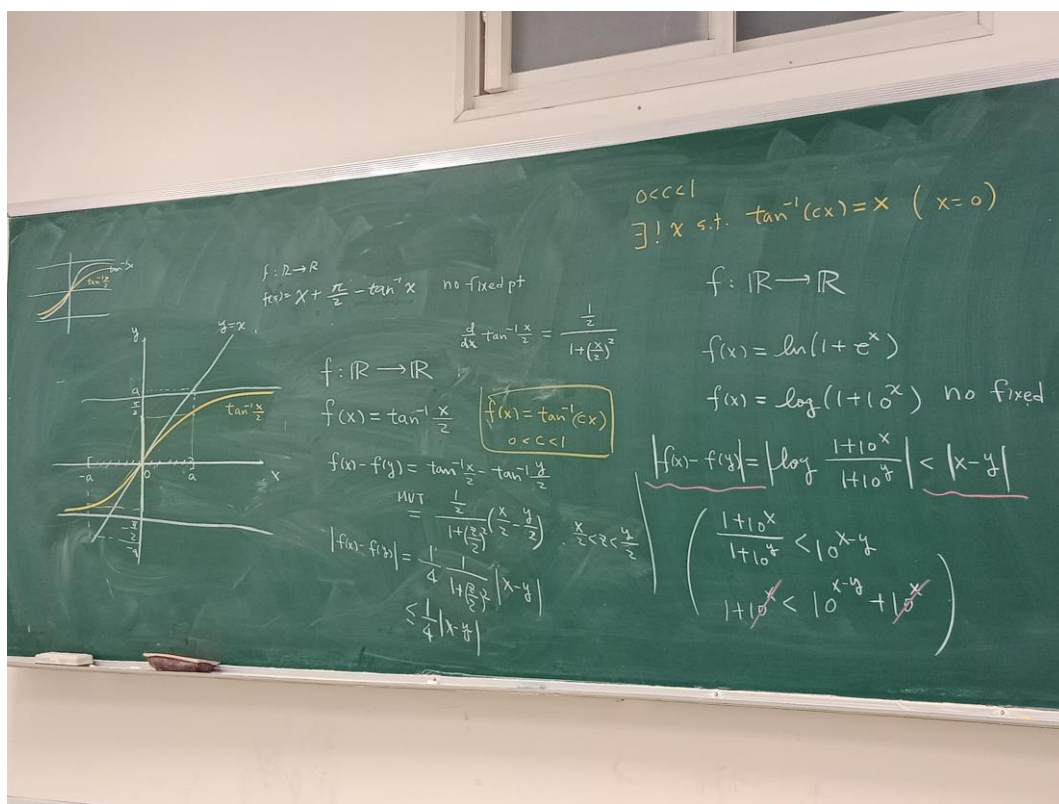 tan⁻¹x
tan⁻¹ x/2
f : ℝ → ℝ
f(x) = x + π/2 − tan⁻¹ x no fixed pt
y
y = x
a
π/2
tan⁻¹ x/2
-a
0
a
x
-π/2
-a
d/dx tan⁻¹ x/2 = (1/2)/(1+(x/2)²)
f : ℝ → ℝ
f(x) = tan⁻¹ x/2
f(x) = tan⁻¹(cx)
0 < c < 1
f(x) − f(y) = tan⁻¹ x/2 − tan⁻¹ y/2
MVT
= (1/2)/(1+(z/2)²) (x/2 − y/2) . x/2 < z < y/2
|f(x) − f(y)| = 1/4 · 1/(1+(z/2)²) |x−y|
≤ 1/4 |x−y|
0<c<1
∃! x s.t. tan⁻¹(cx) = x ( x = 0 )
f : ℝ → ℝ
f(x) = ln(1 + eˣ)
f(x) = log(1 + 10ˣ) no fixed
|f(x) − f(y)| = |log (1+10ˣ)/(1+10ʸ)| < |x−y|
( (1+10ˣ)/(1+10ʸ) < 10ˣ⁻ʸ
1+10ˣ < 10ˣ⁻ʸ + 10ˣ )